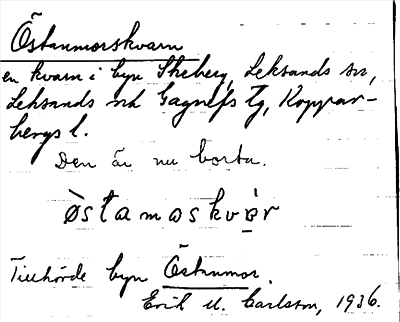 Östanmorskvarn
en kvarn i byn Skeberg, Leksands sn,
Leksands och Gagnefs tg, Koppar-
bergs l.
Den är nu borta.
òstamaskvà̠r
Tillhörde byn Östanmor.
Erik M. Carlsson, 1936.